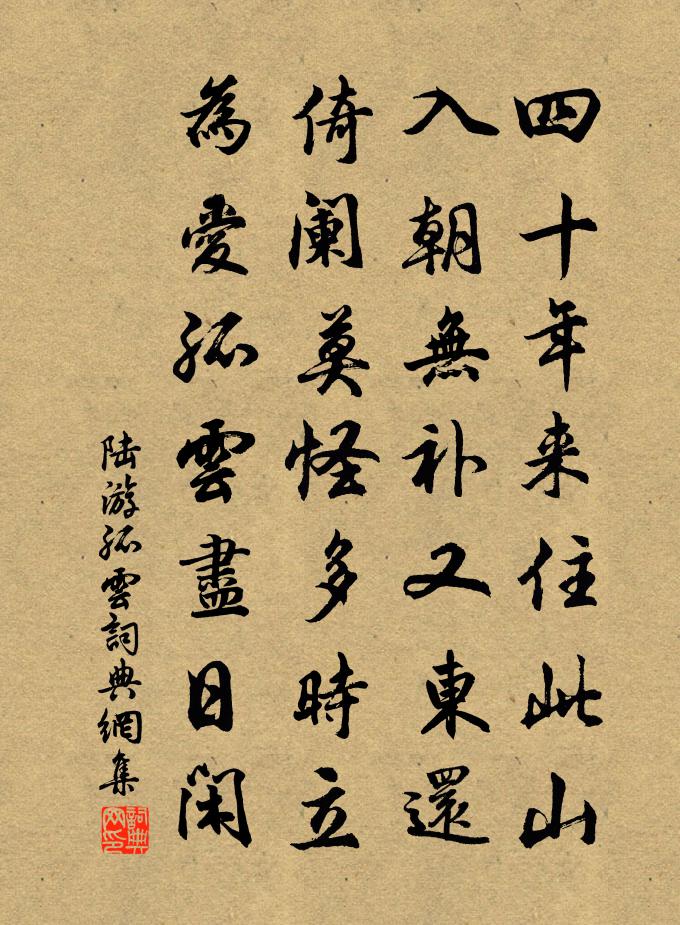 四十年来住此山
入朝無补又東還
倚阑莫怪多時立
為愛孤雲盡日閑
陆游孤雲詞典網集
詞典網印